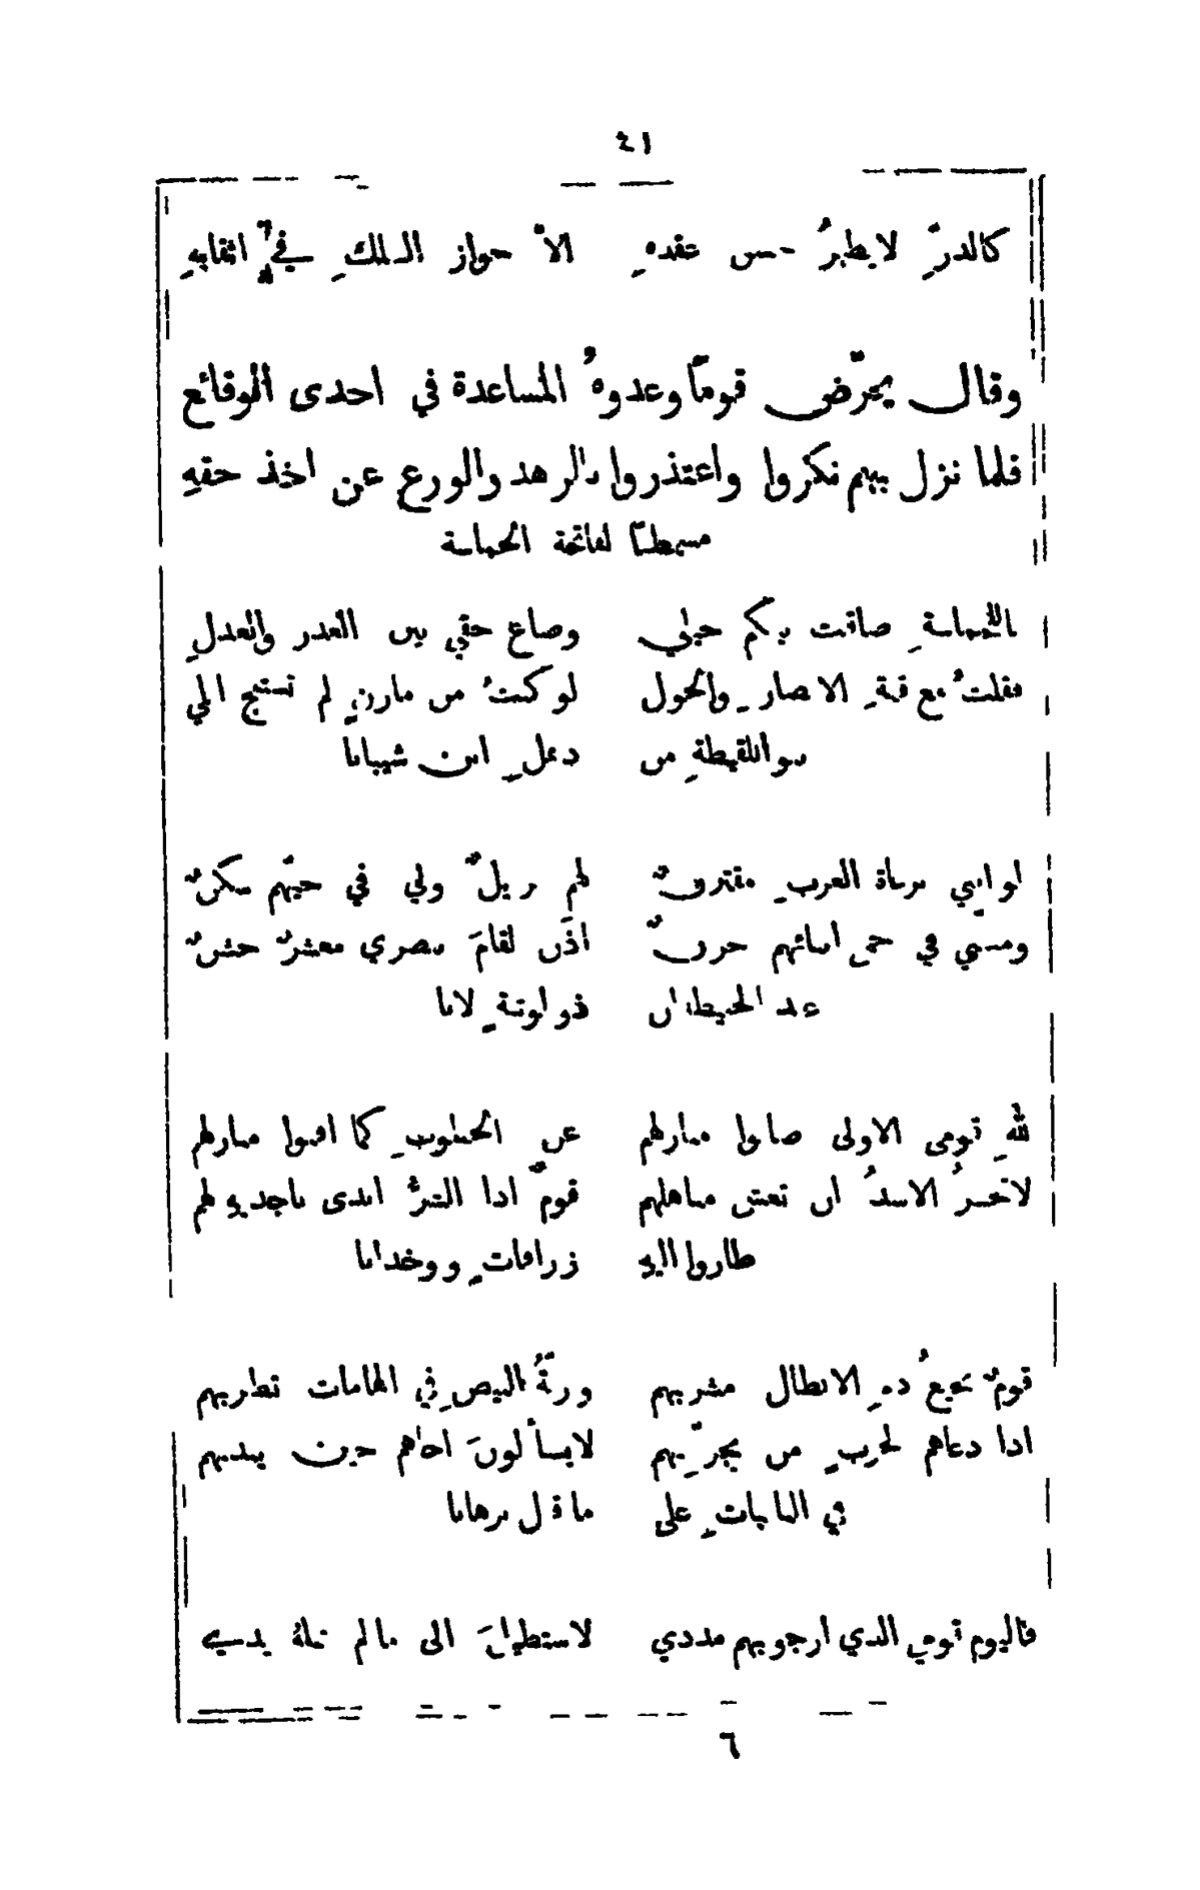 ٤١
كالدرِّ لا يظهرُ حسن عقدهِ الاّ جواز السلكِ في اثقابهِ
وقال يحرّض قومًا وعدوهُ المساعدة في احدى الوقائع
فلما نزل بهم نكروا واعتذروا بالزهد والورع عن اخذ حقهِ
مسمطًا لفاتحة الحماسة
ضاقت بكم حيلي وضاع حقي بين الغدر والعدلِ
فقلتُ مع قلةِ الانصارِ والخول لو كنتُ من مازنٍ لم تستبح ابلي
بنو اللقيطةِ من ذهلِ ابن شيبانا
لو انني برماة العربِ مقترنٌ لهم نزيلٌ ولي في حيّهم سكنٌ
ومسّني في حمى ابنائهم حزنٌ اذًن لقامَ بنصري معشرٌ خشنٌ
عند الحفيظة ان ذو لوثةٍ لانا
للهِ قومي الاولى صانوا منازلهم عن الخطوبِ كما افنوا منازلهم
لا تجسرُ الاسدُ ان تغشى مناهلهم قومٌ اذا الشرُّ ابدى ناجذيهِ لهم
طاروا اليهِ زرافاتٍ ووحدانا
قومٌ نجيعُ دمِ الابطال مشربهم ورنّةُ البيضِ في الهامات تطربهم
اذا دعاهم لحربٍ من يجرّبهم لا يسألونَ اخاهم حين يندبهم
في النائباتِ على ما قال برهانا
فاليوم قومي الذي ارجو بهم مددي لاستطيلَ الى ما لم تنلهُ يدي
٦